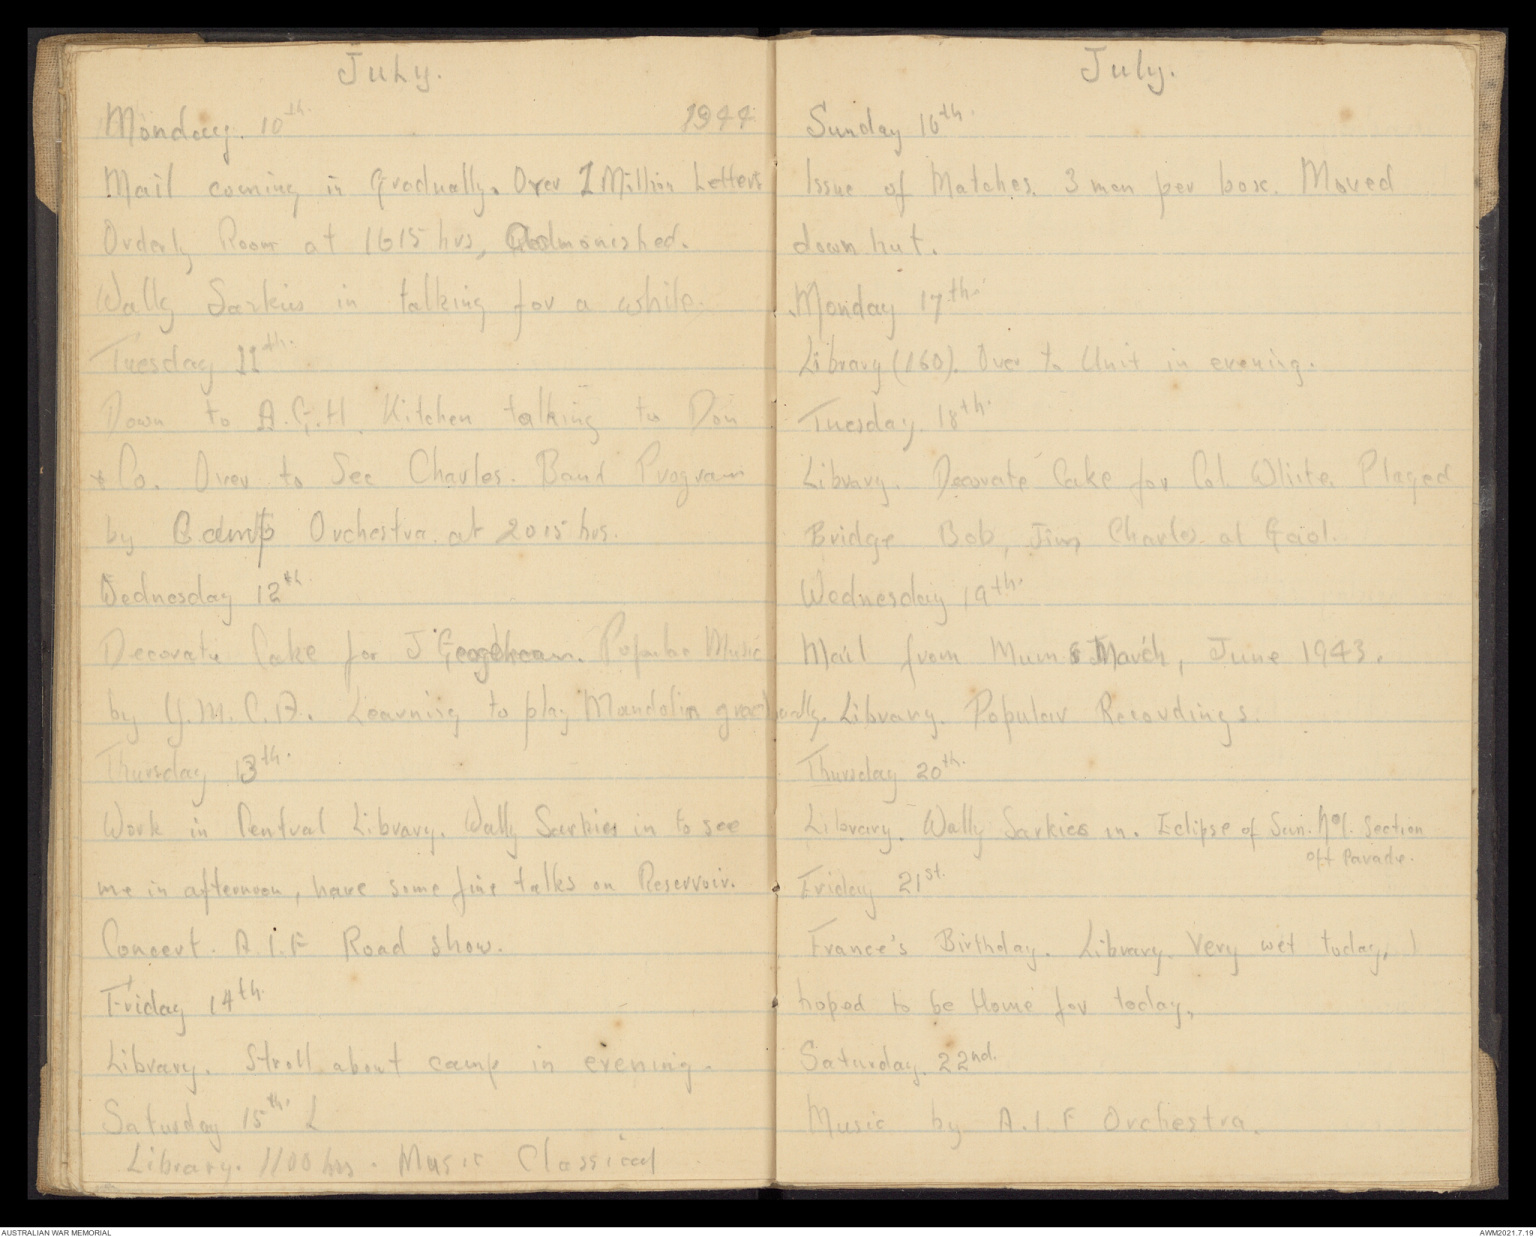 July.
Monday. 10th. 1944
Mail coming in gradually. Over 1 Million Letters
Orderly Room at 1615 hrs, Admonished.
Wally Sarkies in talking for a while.
Tuesday 11th.
Down to A.G.H. Kitchen talking to Don
& Co. Over to See Charles. Band Program
by Camp Orchestra. at 2015 hrs.
Wednesday 12th.
Decorate Cake for J Geoghean. Popular Music
by Y.M.C.A. Learning to play Mandolin gradually.
Thursday 13th.
Work in Central Library. Wally Sarkies in to see
me in afternoon, have some fine talks on Reservoir.
Concert. A.I.F Road show.
Friday 14th.
Library. Stroll about camp in evening.
Saturday 15th. L
Library. 1100 hrs. Music Classical
July.
Sunday 16th.
Issue of Matches. 3 men per box. Moved
down hut.
Monday 17th.
Library (160). Over to Unit in evening.
Tuesday. 18th.
Library. Decorate Cake for Col. White. Played
Bridge Bob, Jim, Charles at Gaol.
Wednesday 19th.
Mail from Mum March, June 1943.
Library. Popular Recordings.
Thursday 20th.
Library. Wally Sarkies in. Eclipse of Sun. Section
off Parade.
Friday 21st.
France's Birthday. Library. Very wet today, I
hoped to be Home for today,
Saturday. 22nd.
Music by A.I.F Orchestra.
AUSTRALIAN WAR MEMORIAL
AWM2021.7.19